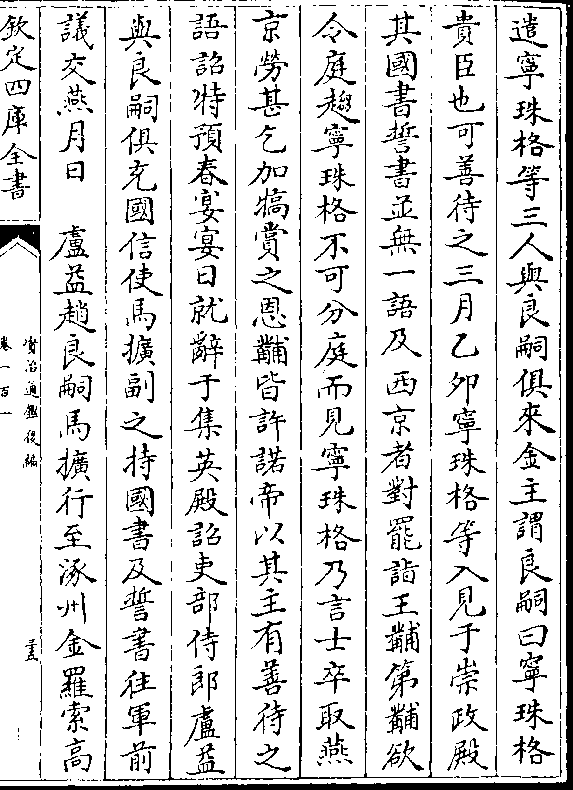 遣寧珠格等三人與良嗣俱來金主謂良嗣曰寧珠格
貴臣也可善待之三月乙卯寧珠格等入見于崇政殿
其國書誓書並無一語及西京者對罷詣王黼第黼欲
令庭趨寧珠格不可分庭而見寧珠格乃言士卒取燕
京勞甚乞加犒賞之恩黼皆許諾帝以其主有善待之
語詔特預春宴宴日就辭于集英殿詔吏部侍郎盧益
與良嗣俱充國信使馬擴副之持國書及誓書往軍前
議交燕月日　盧益趙良嗣馬擴行至涿州金羅索高
欽定四庫全書
資治通鑑後編
卷一百一